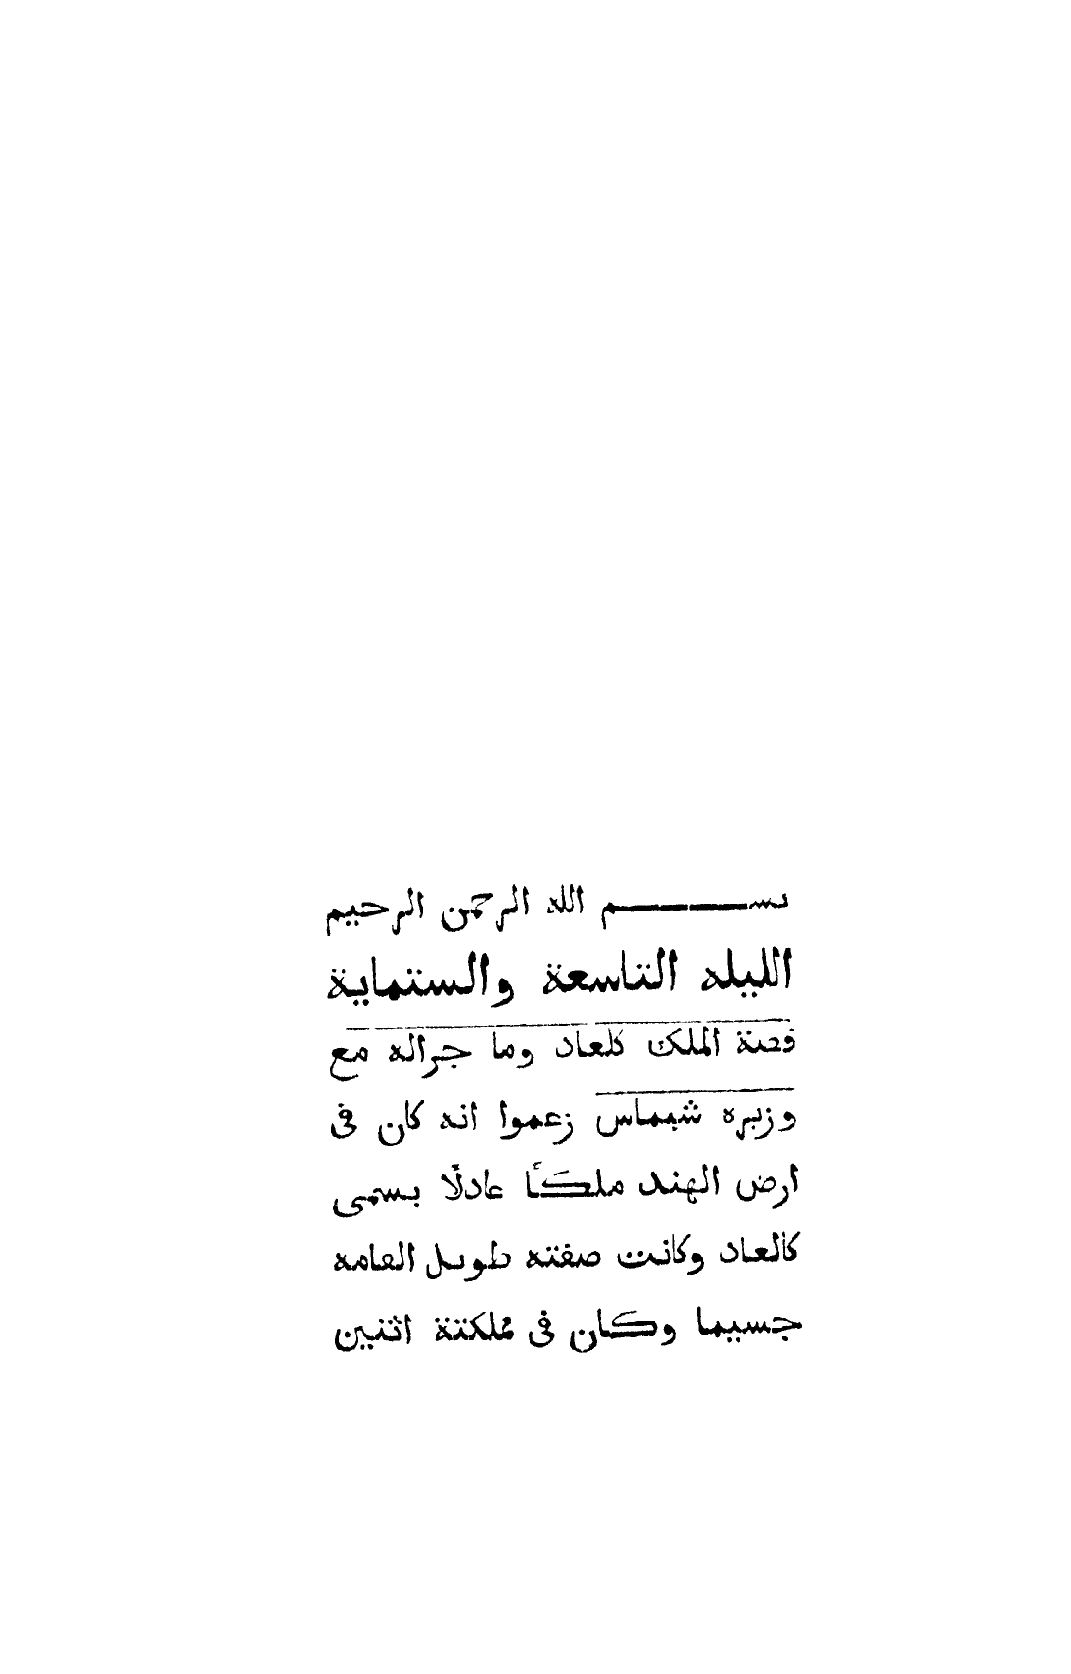 بســـــم الله الرحمن الرحيم
الليله التاسعة والستماية
قصة الملك كلعاد وما جراله مع
وزيره شيماس زعموا انه كان فى
ارض الهند ملكًا عادلًا يسمى
كالعاد وكانت صفته طويل القامه
جسيما وكان فى مملكتة اثنين